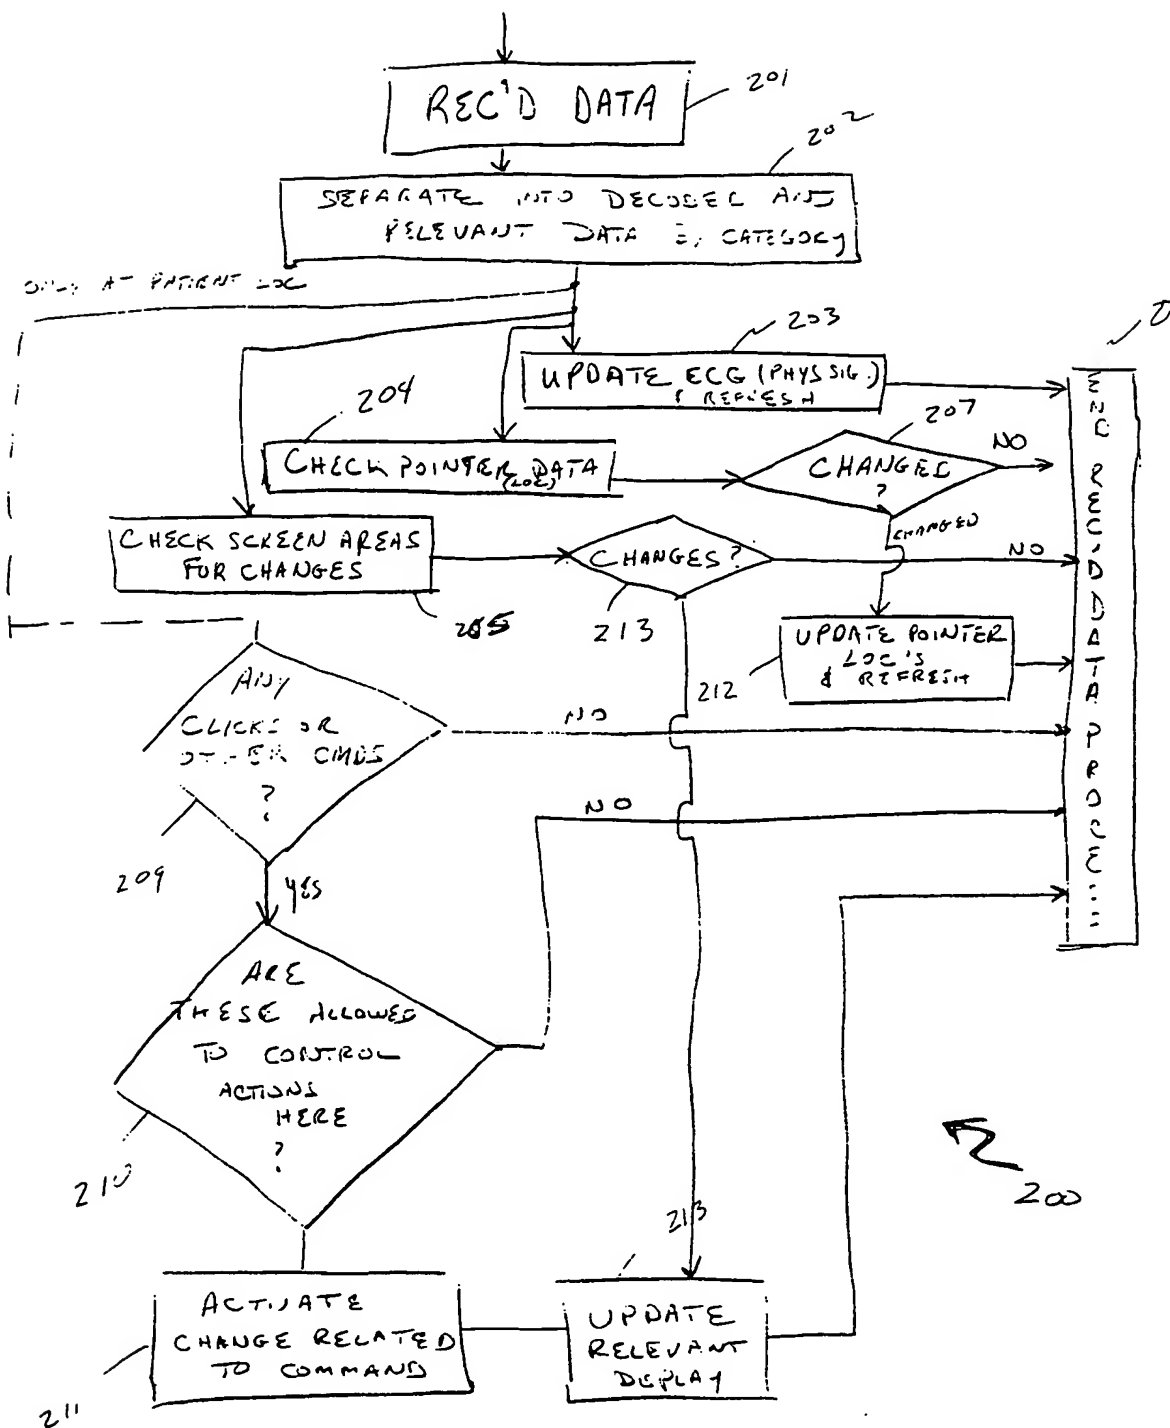 REC'D DATA
201
202
SEPARATE INTO DECODED AND
RELEVANT DATA BY CATEGORY
ONLY AT PATIENT LOC
203
UPDATE ECG (PHYS SIG.)
& REFRESH
204
CHECK POINTER DATA
(LOC)
207
CHANGES
?
NO
CHANGED
CHECK SCREEN AREAS
FOR CHANGES
205
CHANGES?
NO
213
UPDATE POINTER
LOC'S
& REFRESH
212
ANY
CLICKS OR
OTHER CMDS
?
NO
209
YES
NO
ARE
THESE ALLOWED
TO CONTROL
ACTIONS
HERE
?
210
END REC'D DATA PROCESS
200
213
ACTIVATE
CHANGE RELATED
TO COMMAND
211
UPDATE
RELEVANT
DISPLAY